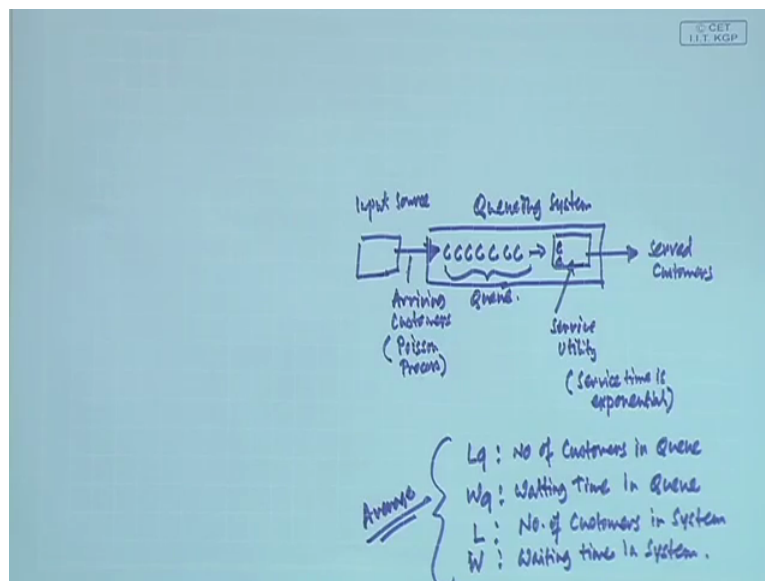 © CET
I.I.T. KGP
Input Source
Queueing System
C C C C C C C
Served
Customers
Arriving
Customers
(Poisson
Process)
Queue.
Service
Utility
(Service time is
exponential)
Average
Lq : No of Customers in Queue
Wq : Waiting Time in Queue
L : No. of Customers in System
W : Waiting time in System.